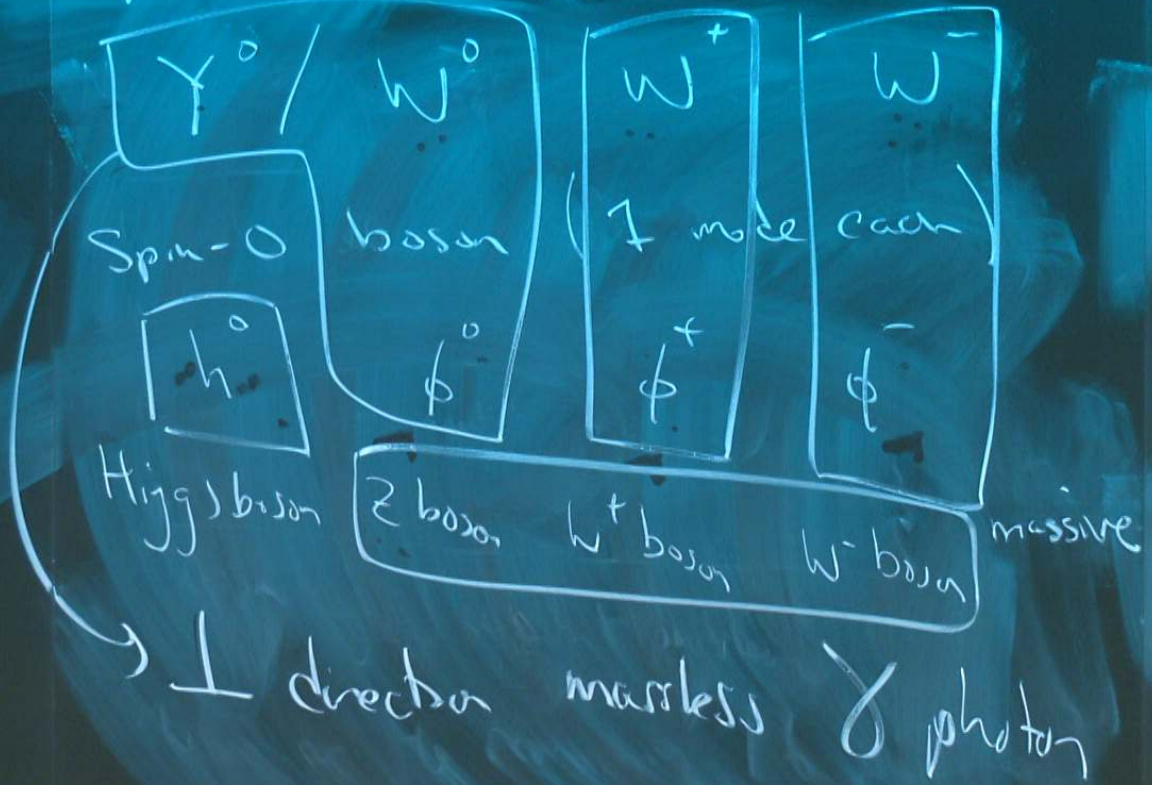 Y⁰ / W⁰ W⁺ W⁻
Spin-0 boson (1 mode each)
h⁰ ϕ⁰ ϕ⁺ ϕ⁻
Higgs boson Z boson W⁺ boson W⁻ boson massive
→ ⊥ direction massless γ photon